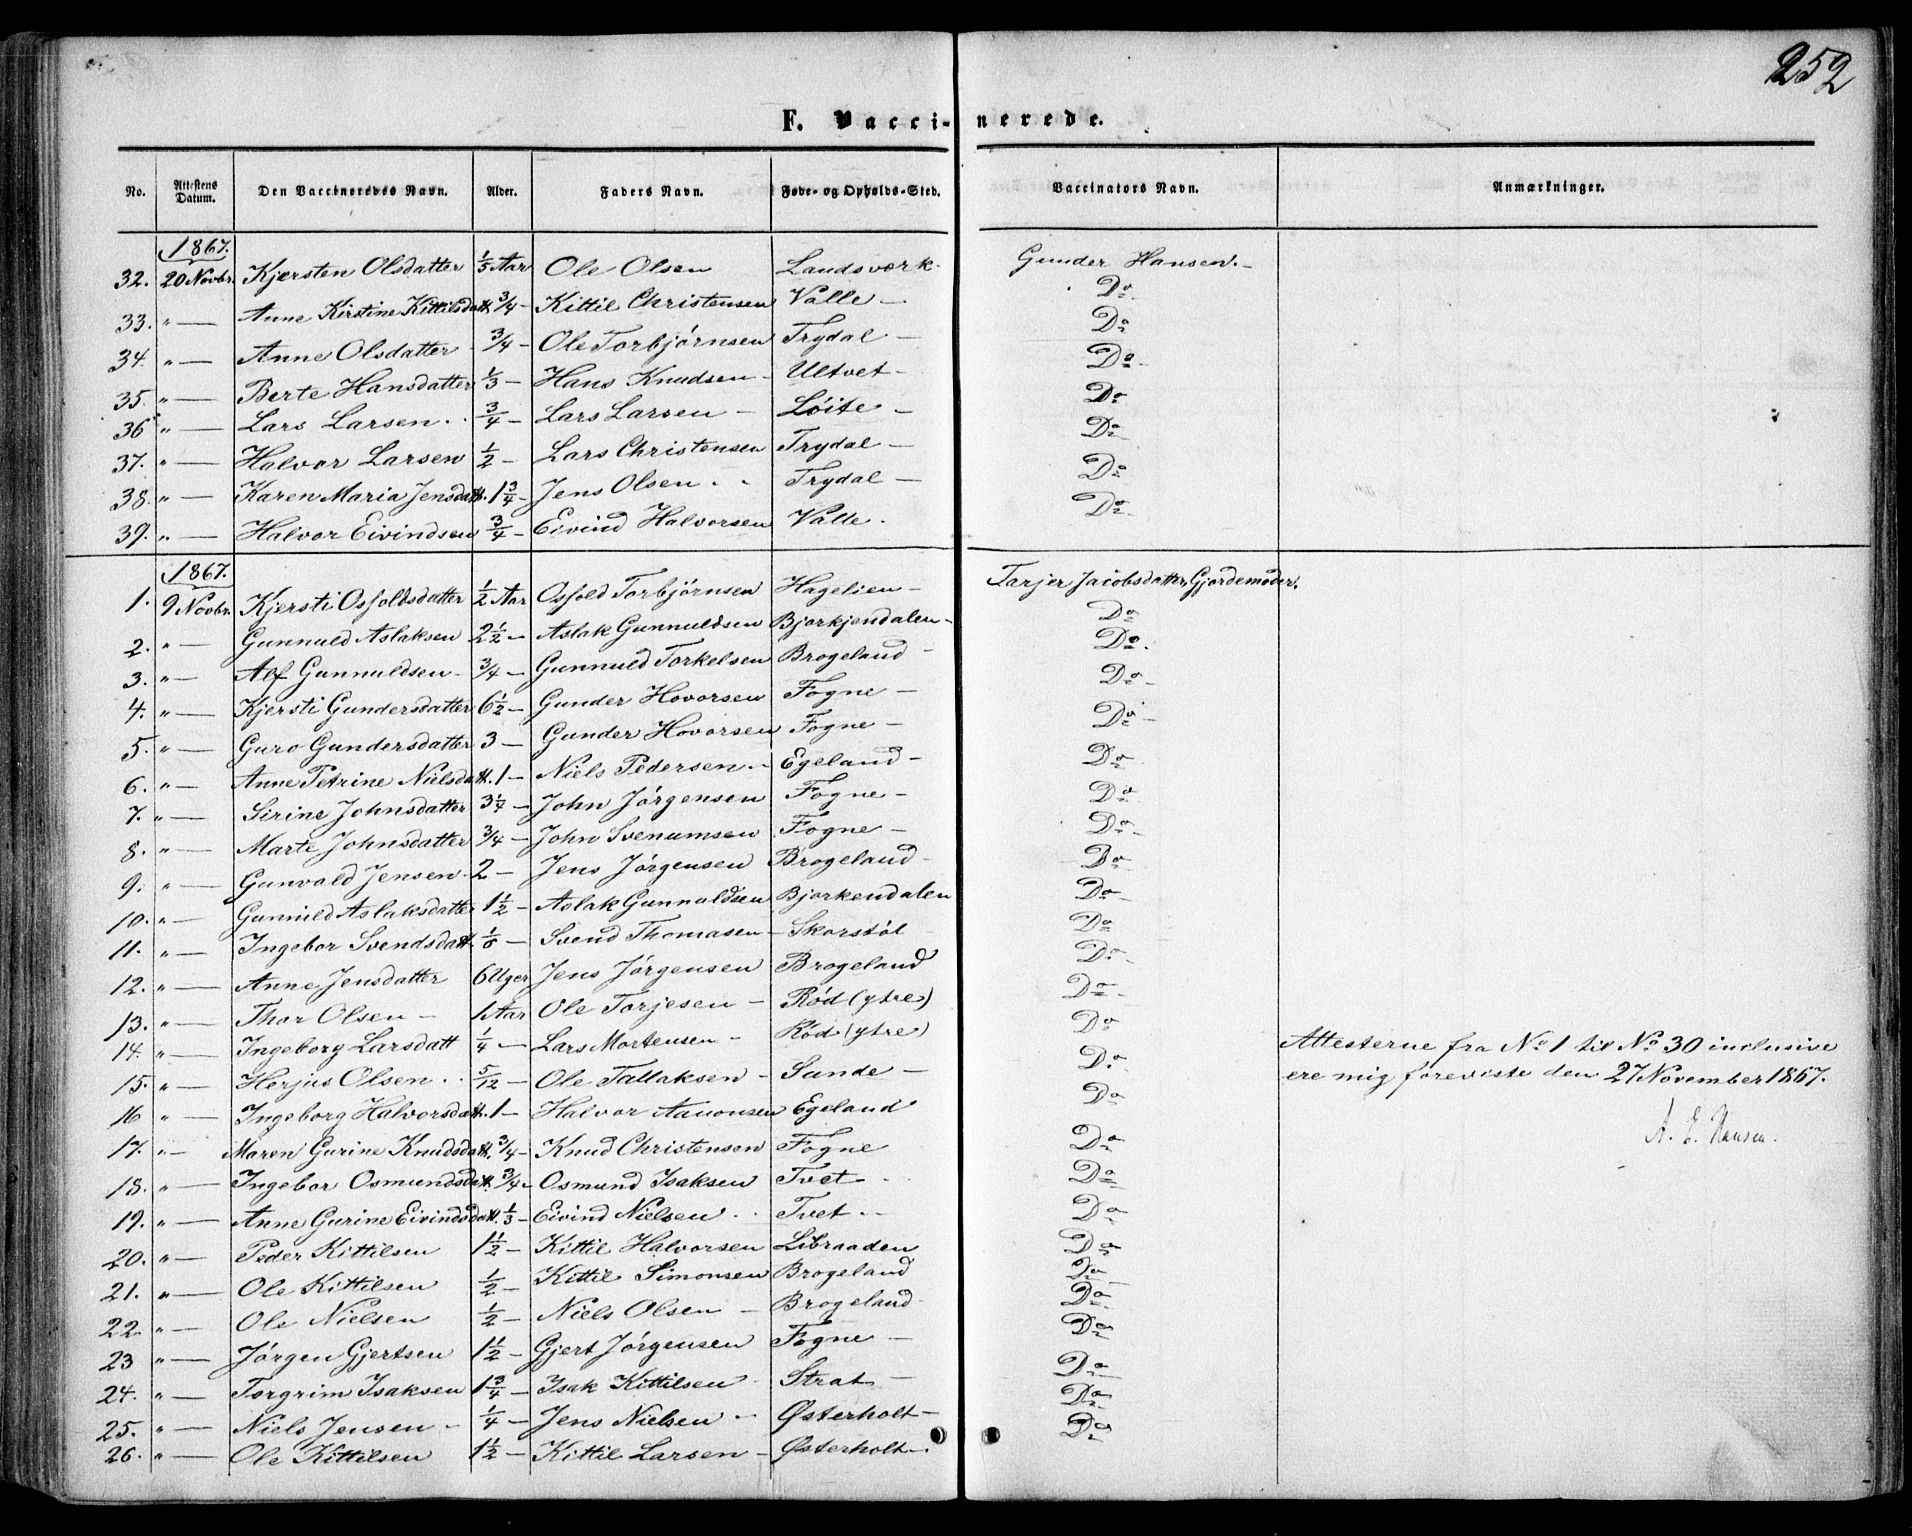 252
F. Vaccinerede.
No. | Attestens Datum. | Den Vaccineredes Navn. | Alder. | Faders Navn. | Føde- og Opholds-Sted. | Vaccinators Navn. | Anmærkninger.
1867.
32. 20 Novbr. Kjersten Olsdatter 1/5 Aar Ole Olsen Landsverk - Gunder Hansen. -
33. " — Anne Kirstine Kittilsdatt. 3/4 - Kittil Christensen Valle - Do
34. " — Anne Olsdatter 3/4 - Ole Torbjørnsen Trydal - Do
35. " — Berte Hansdatter 1/3 - Hans Knudsen - Ultvet - Do
36 " — Lars Larsen . 3/4 - Lars Larsen - Løite - Do
37. " — Halvor Larsen 1/2 - Lars Christensen Trydal - Do
38. " — Karen Maria Jensdatt. 1 3/4 - Jens Olsen . Trydal - Do
39. " — Halvor Eivindsen 3/4 - Eivind Halvorsen Valle . Do
1867.
1. 9 Novbr. Kjersti Osfoldsdatter 1/2 Aar Osfold Torbjørnsen Hagelien - Tarjer Jacobsdatter, Gjordemoder.
2. " — Gunnuld Aslaksen 2 1/2 - Aslak Gunnuldsen Bjorkjendalen - Do
3. " — Alf Gunnuldsen - 3/4 - Gunnuld Torkelsen Brogeland - Do
4. " — Kjersti Gundersdatter 6 1/2 - Gunder Hovorsen Fogne - Do
5. " — Guro Gundersdatter 3 - Gunder Hovorsen Fogne - Do
6. " — Anne Petrine Nielsdatt. 1 - Niels Pedersen - Egeland - Do
7. " — Sirine Johnsdatter 3 1/4 - John Jørgensen Fogne - Do
8. " — Marte Johnsdatter 3/4 - John Svenumsen Fogne - Do
9. " — Gunvald Jensen . 2 - Jens Jørgensen Brogeland - Do
10. " — Gunnild Aslaksdatter 1 1/2 - Aslak Gunnuldsen Bjorkendalen Do
11. " — Ingebor Svendsdatt. - Svend Thomasen - Skorstøl Do
12. " — Anne Jensdatter 6 Uger Jens Jørgensen Brogeland Do
13. " — Thor Olsen - 1 Aar Ole Torjesen - Rød (ytre) Do
14. " — Ingeborg Larsdatt 1/4 - Lars Mortensen - Rød (ytre) Do
15. " — Herjus Olsen . . 5/12 - Ole Tallaksen - Sunde - Do
16 " — Ingeborg Halvorsdatt. 1 - Halvor Aanonsen Egeland Do
17. " — Maren Gurine Knudsdatt. 3/4 - Knud Christensen Fogne Do
18. " — Ingebor Osmundsdatt. 3/4 - Osmund Isaksen Tvet - Do
19. " — Anne Gurine Eivindsdatt. 1/3 - Eivind Nielsen . . Tvet - Do
20. " — Peder Kittilsen 1 1/2 - Kittil Halvorsen Libraaden Do
21. " — Ole Kittilsen 1/2 - Kittil Simonsen Brogeland Do
22. " — Ole Nielsen 1/2 - Niels Olsen - Brogeland Do
23 " — Jørgen Gjertsen 1 1/2 - Gjert Jørgensen Fogne - Do
24. " — Torgrim Isaksen 1 3/4 - Isak Kittilsen . Strat - Do
25. " — Niels Jensen - 1/4 - Jens Nielsen - Østerholt - Do
26. " — Ole Kittilsen 1 1/2 - Kittil Larsen - Østerholt - Do
Attesterne fra No 1 til No 30 inclusive
ere mig foreviste den 27 November 1867.
A. E. Hansen.